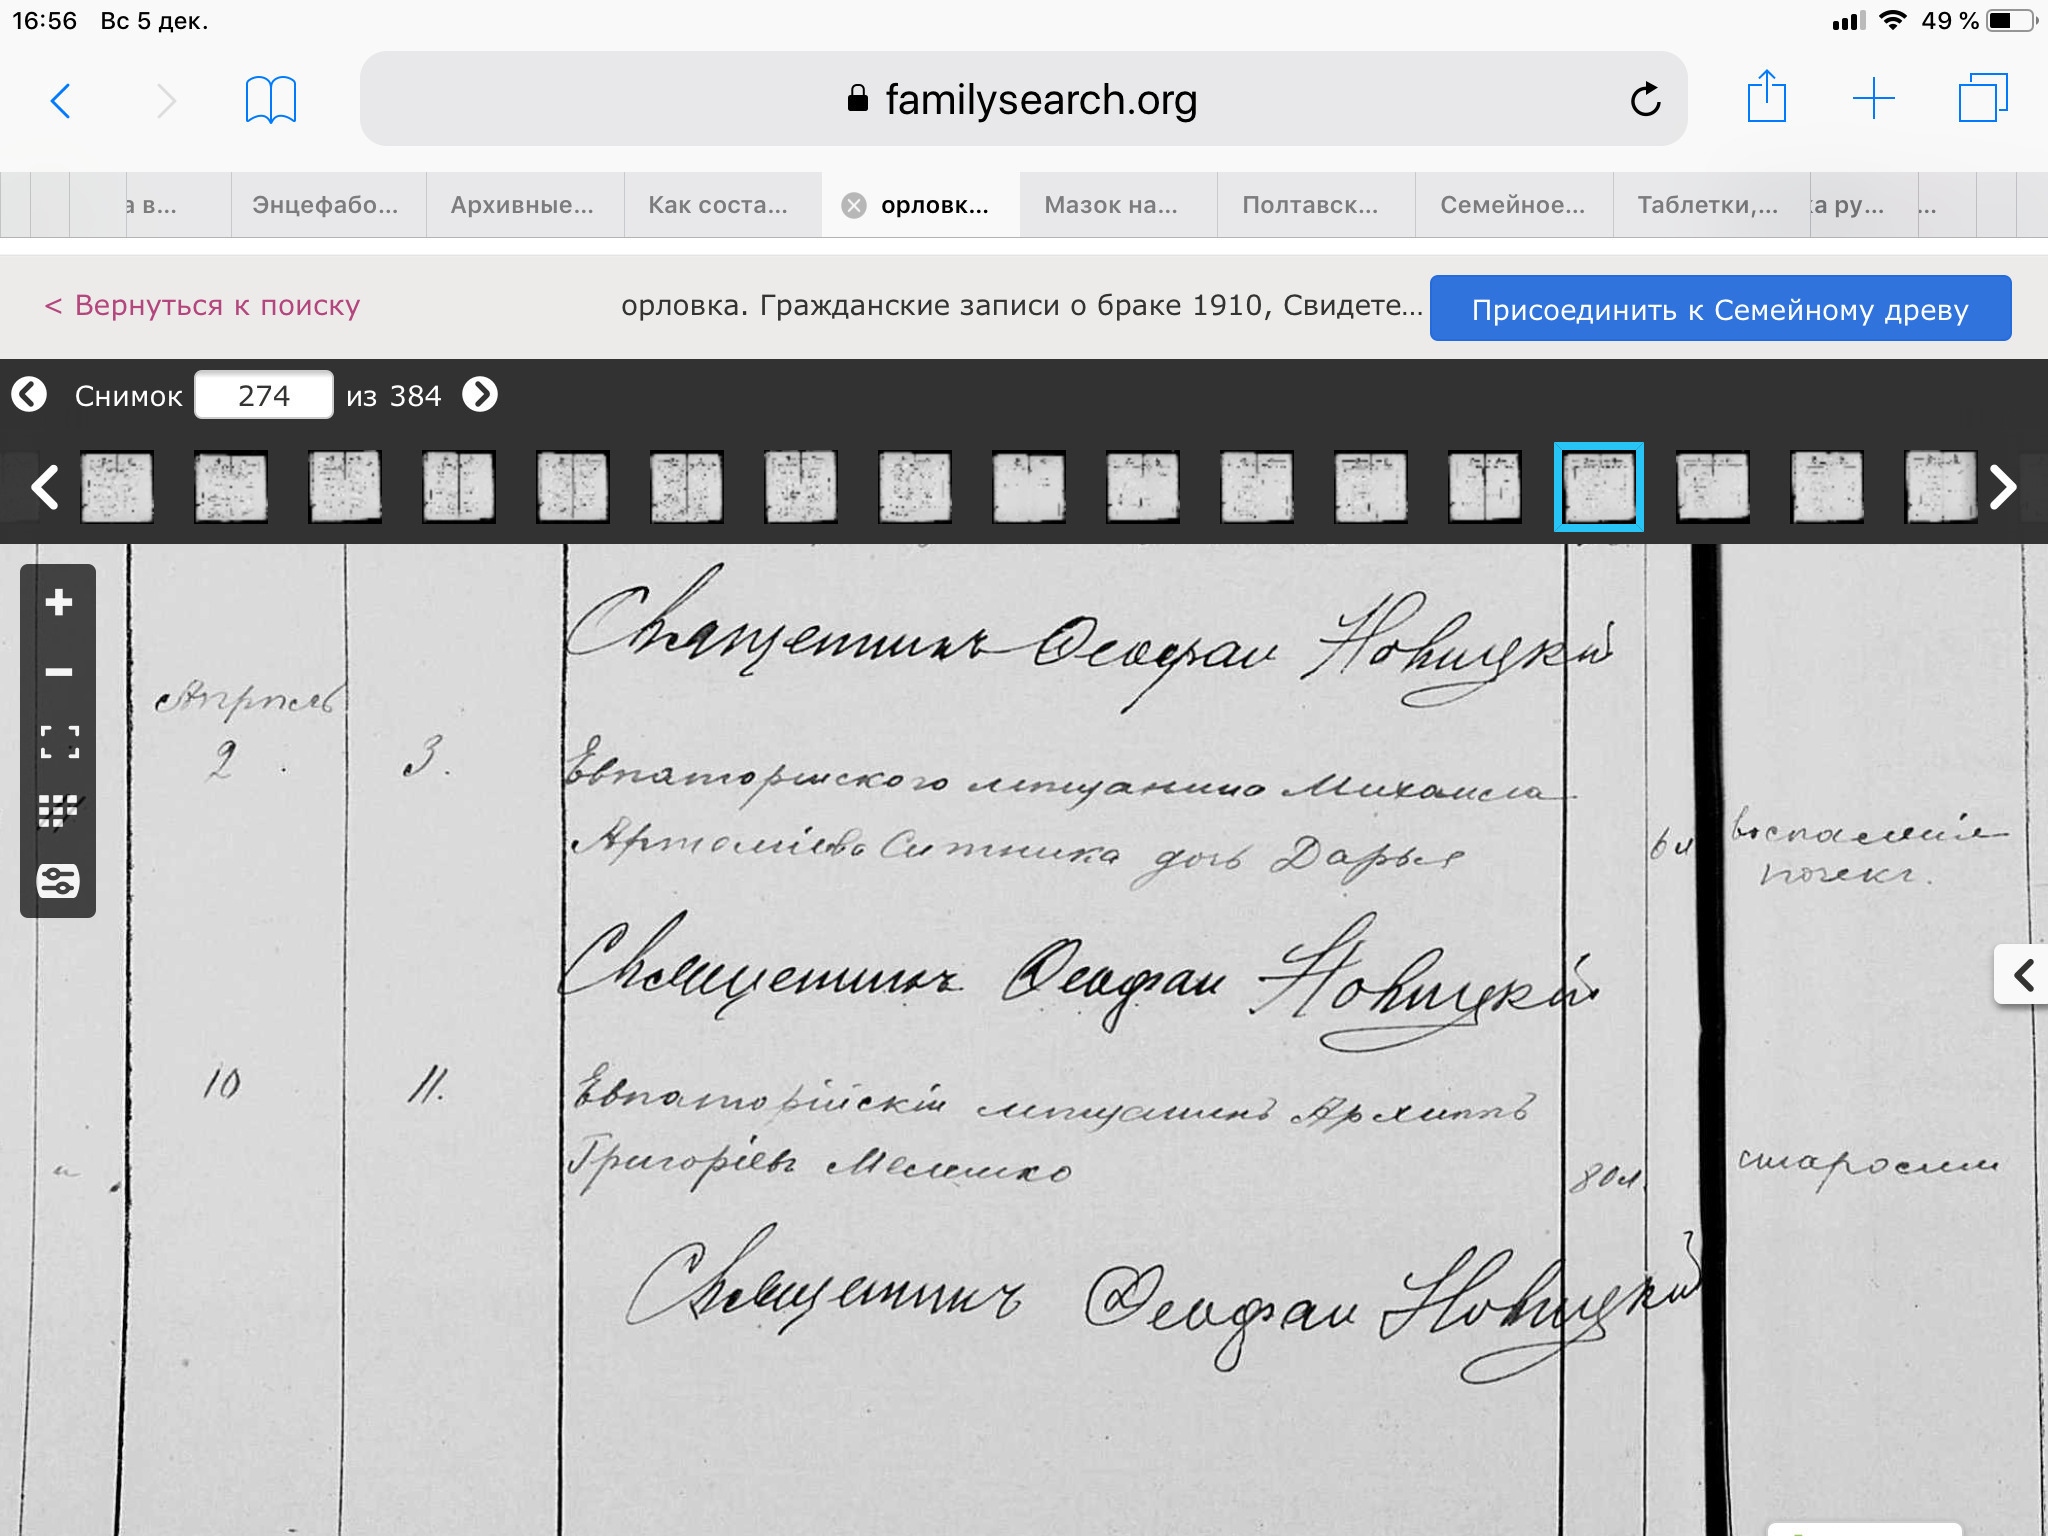 16:56 Вс 5 дек. 49 %
familysearch.org
а в... Энцефабо... Архивные... Как соста... орловк... Мазок на... Полтавск... Семейное... Таблетки,... ка ру... ...
< Вернуться к поиску орловка. Гражданские записи о браке 1910, Свидете... Присоединить к Семейному древу
Снимок 274 из 384
Священникъ Феофан Новицкий
Апрѣль
2 3. Евпаторійского мѣщанина Михаила
Артемiева Ситника дочь Дарья 6 л воспаленiе
почекъ.
Священникъ Феофан Новицкий
10 11. Евпаторійскій мѣщанинъ Архиппъ
Григорiевъ Мелешко 80 л. старости
Священникъ Феофан Новицкий